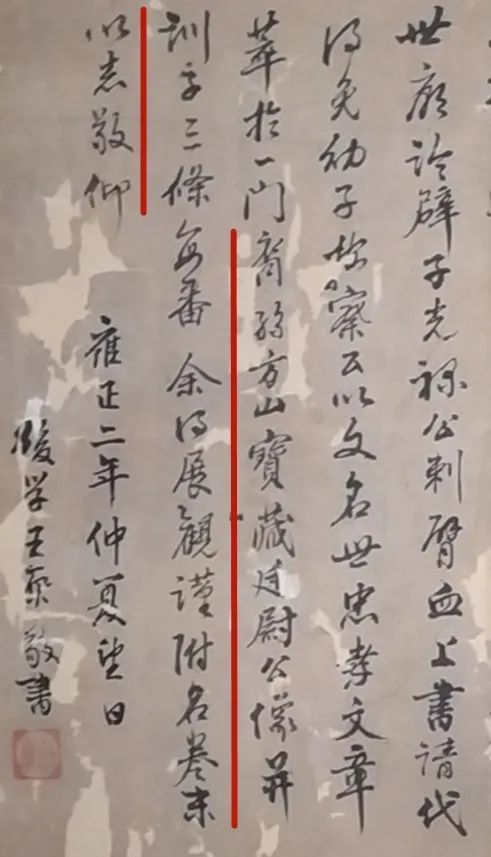 世廟論辟子光祿公刺臂血上書請代
得免幼子按察公以文名世忠孝文章
萃於一門裔孫方山寶藏廷尉公像并
訓子三條每番余得展觀謹附名卷末
以志敬仰
雍正二年仲夏望日
後学王敬書